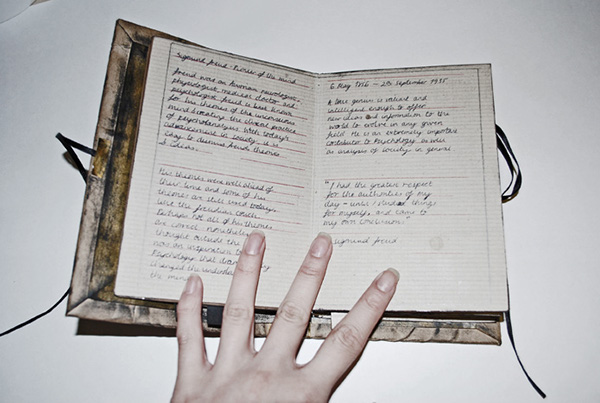 Sigmund Freud - Power of the mind
Freud was an Austrian neurologist,
physiologist, medical doctor and
psychologist. Freud is best known
for his themes of the unconscious
mind & creating the clinical practice
of psychoanalysis. With today's
advancements in society, it is
easy to dismiss Freud's themes
& ideas.
His themes were well ahead of
their time and some of his
themes are still used today,
like the freudian couch.
Perhaps not all of his themes
are correct, nonetheless
thought outside the
now an inspiration to
Psychology that
changed the
the mind
6 May 1856 - 23 September 1935
A true genius is valiant and
intelligent enough to offer
new ideas and information to the
world to evolve in any given
field. He is an extremely important
contributor to Psychology as well
as analysis of society in general
"I had the greatest respect
for the authorities of my
day - until I studied things
for myself, and came to
my own conclusion."
Sigmund Freud